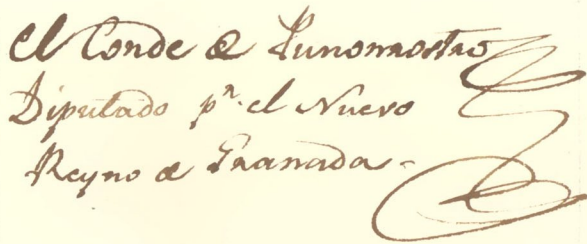 el Conde de Punonrostro
Diputado pr. el Nuevo
Reyno de Granada.